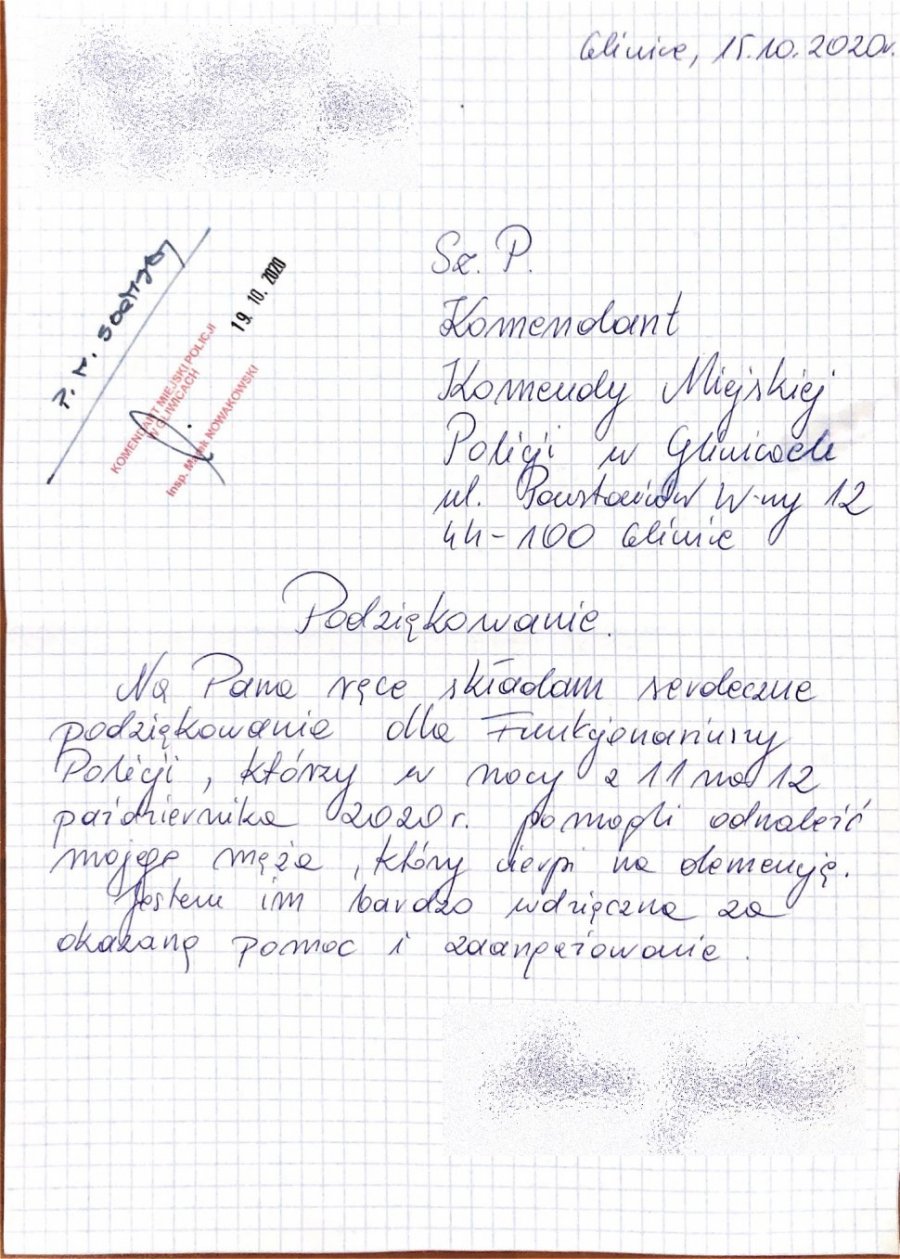 Gliwice, 15.10.2020r.
19. 10. 2020
KOMENDANT MIEJSKI POLICJI
W GLIWICACH
insp. Marek NOWAKOWSKI
Sz. P.
Komendant
Komendy Miejskiej
Policji w Gliwicach
ul. Powstańców W-wy 12
44-100 Gliwice
Podziękowanie.
Na Pana ręce składam serdeczne
podziękowanie dla Funkcjonariuszy
Policji, którzy w nocy z 11 na 12
października 2020r. pomogli odnaleźć
mojego męża, który cierpi na demencję.
Jestem im bardzo wdzięczna za
okazaną pomoc i zaangażowanie.